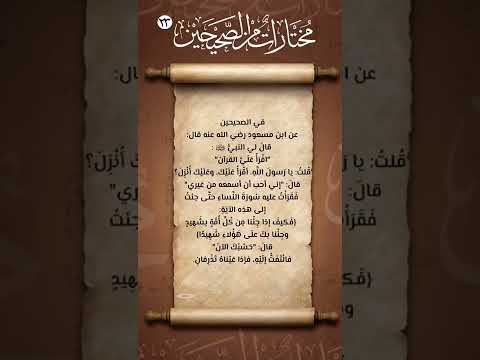 مُختَارَاتٌ مِنَ الصَّحِيحَيْن
٢٢
في الصحيحين
عن ابن مسعود رضي الله عنه قال:
قالَ لي النبيُّ ﷺ :
"اقْرَأْ عَلَيَّ القرآنَ"
قُلتُ: يا رَسولَ اللَّهِ، أقْرَأُ عَلَيْكَ، وعَلَيْكَ أُنْزِلَ؟
قالَ: "إني أحب أن أسمعه من غيري"
فَقَرَأْتُ عليه سُورَةَ النِّساءِ حتَّى جِئْتُ
إلى هذه الآيَةِ:
{فَكيفَ إذَا جِئْنَا مِن كُلِّ أُمَّةٍ بشَهِيدٍ
وجِئْنَا بكَ علَى هَؤُلَاءِ شَهِيدًا}
قالَ: "حَسْبُكَ الآنَ"
فَالْتَفَتُّ إلَيْهِ، فَإِذَا عَيْنَاهُ تَذْرِفَانِ.